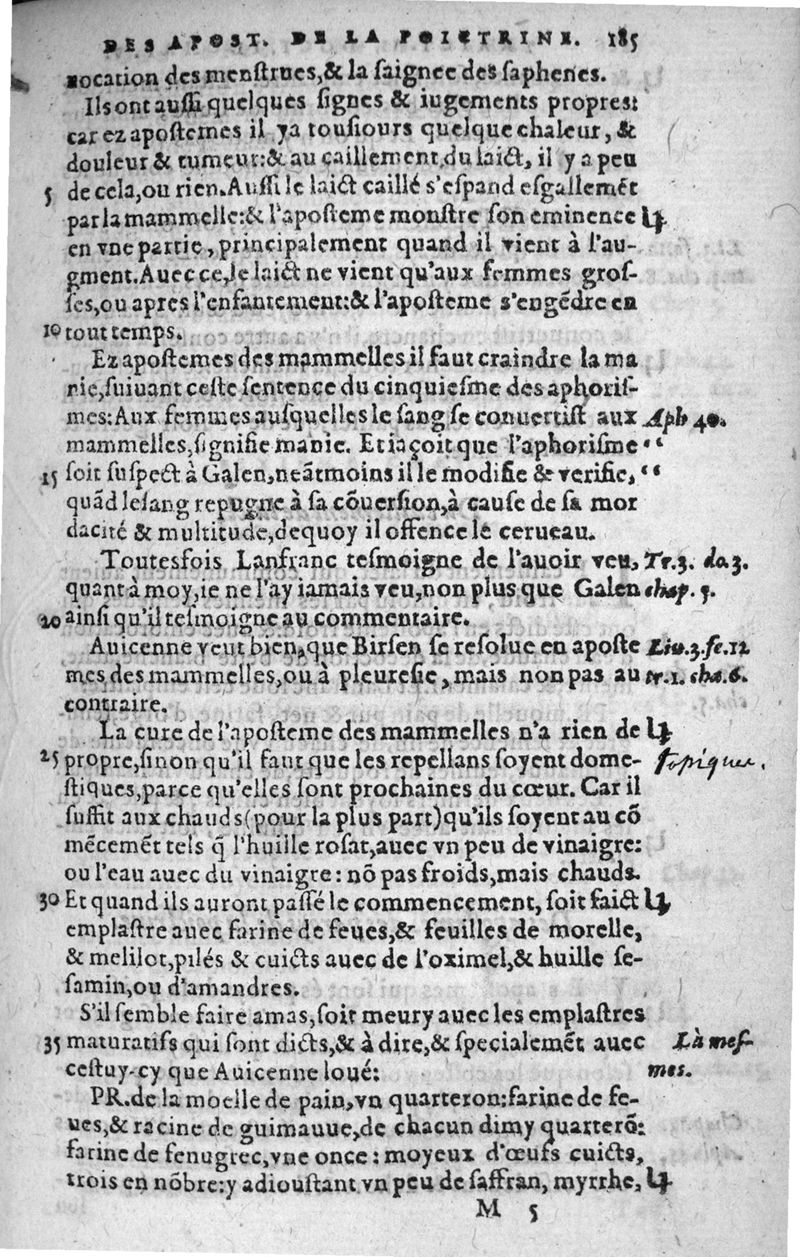 DES APOST. DE LA POICTRINE. 185
uocation des menstrues,& la saignee des saphenes.
Ils ont aussi quelques signes & iugements propres:
car ez apostemes il ya tousiours quelque chaleur, &
douleur & tumeur:& au caillement du laict, il y a peu
5 de cela,ou rien.Aussi le laict caillé s'espand esgallemēt
par la mammelle:& l'aposteme monstre son eminence
en vne partie, principalement quand il vient à l'au-
gment.Auec ce,le laict ne vient qu'aux femmes gros-
ses,ou apres l'enfantement:& l'aposteme s'engēdre en
10 tout temps.
Ez apostemes des mammelles il faut craindre la ma
nie,suiuant ceste sentence du cinquiesme des aphoris-
mes:Aux femmes ausquelles le sang se conuertist aux Aph 40.
mammelles,signifie manie. Et iaçoit que l'aphorisme “
15 soit suspect à Galen,neātmoins il le modifie & verifie, “
quād le sang repugne à sa cōuersion,à cause de sa mor
dacité & multitude,dequoy il offence le cerueau.
Toutesfois Lanfranc tesmoigne de l'auoir veu, Tr.3. do.3.
quant à moy,ie ne l'ay iamais veu,non plus que Galen chap. 5.
20 ainsi qu'il tesmoigne au commentaire.
Auicenne veut bien,que Birsen se resolue en aposte Liu.3.fe.12
mes des mammelles,ou à pleuresie, mais non pas au tr.1. cha.6.
contraire.
La cure de l'aposteme des mammelles n'a rien de
25 propre,sinon qu'il faut que les repellans soyent dome- topiques.
stiques,parce qu'elles sont prochaines du cœur. Car il
suffit aux chauds(pour la plus part)qu'ils soyent au cō
mēcemēt tels q̃ l'huille rosat,auec vn peu de vinaigre:
ou l'eau auec du vinaigre: nō pas froids,mais chauds.
30 Et quand ils auront passé le commencement, soit faict
emplastre auec farine de feues,& feuilles de morelle,
& melilot,pilés & cuicts auec de l'oximel,& huille se-
samin,ou d'amandres.
S'il semble faire amas,soit meury auec les emplastres
35 maturatifs qui sont dicts,& à dire,& specialemēt auec Là mes-
cestuy-cy que Auicenne loué: mes.
PR.de la moelle de pain,vn quarteron:farine de fe-
ues,& racine de guimauue,de chacun dimy quarterō:
farine de fenugrec,vne once : moyeux d'œufs cuicts,
trois en nōbre:y adioustant vn peu de saffran, myrrhe,
M 5